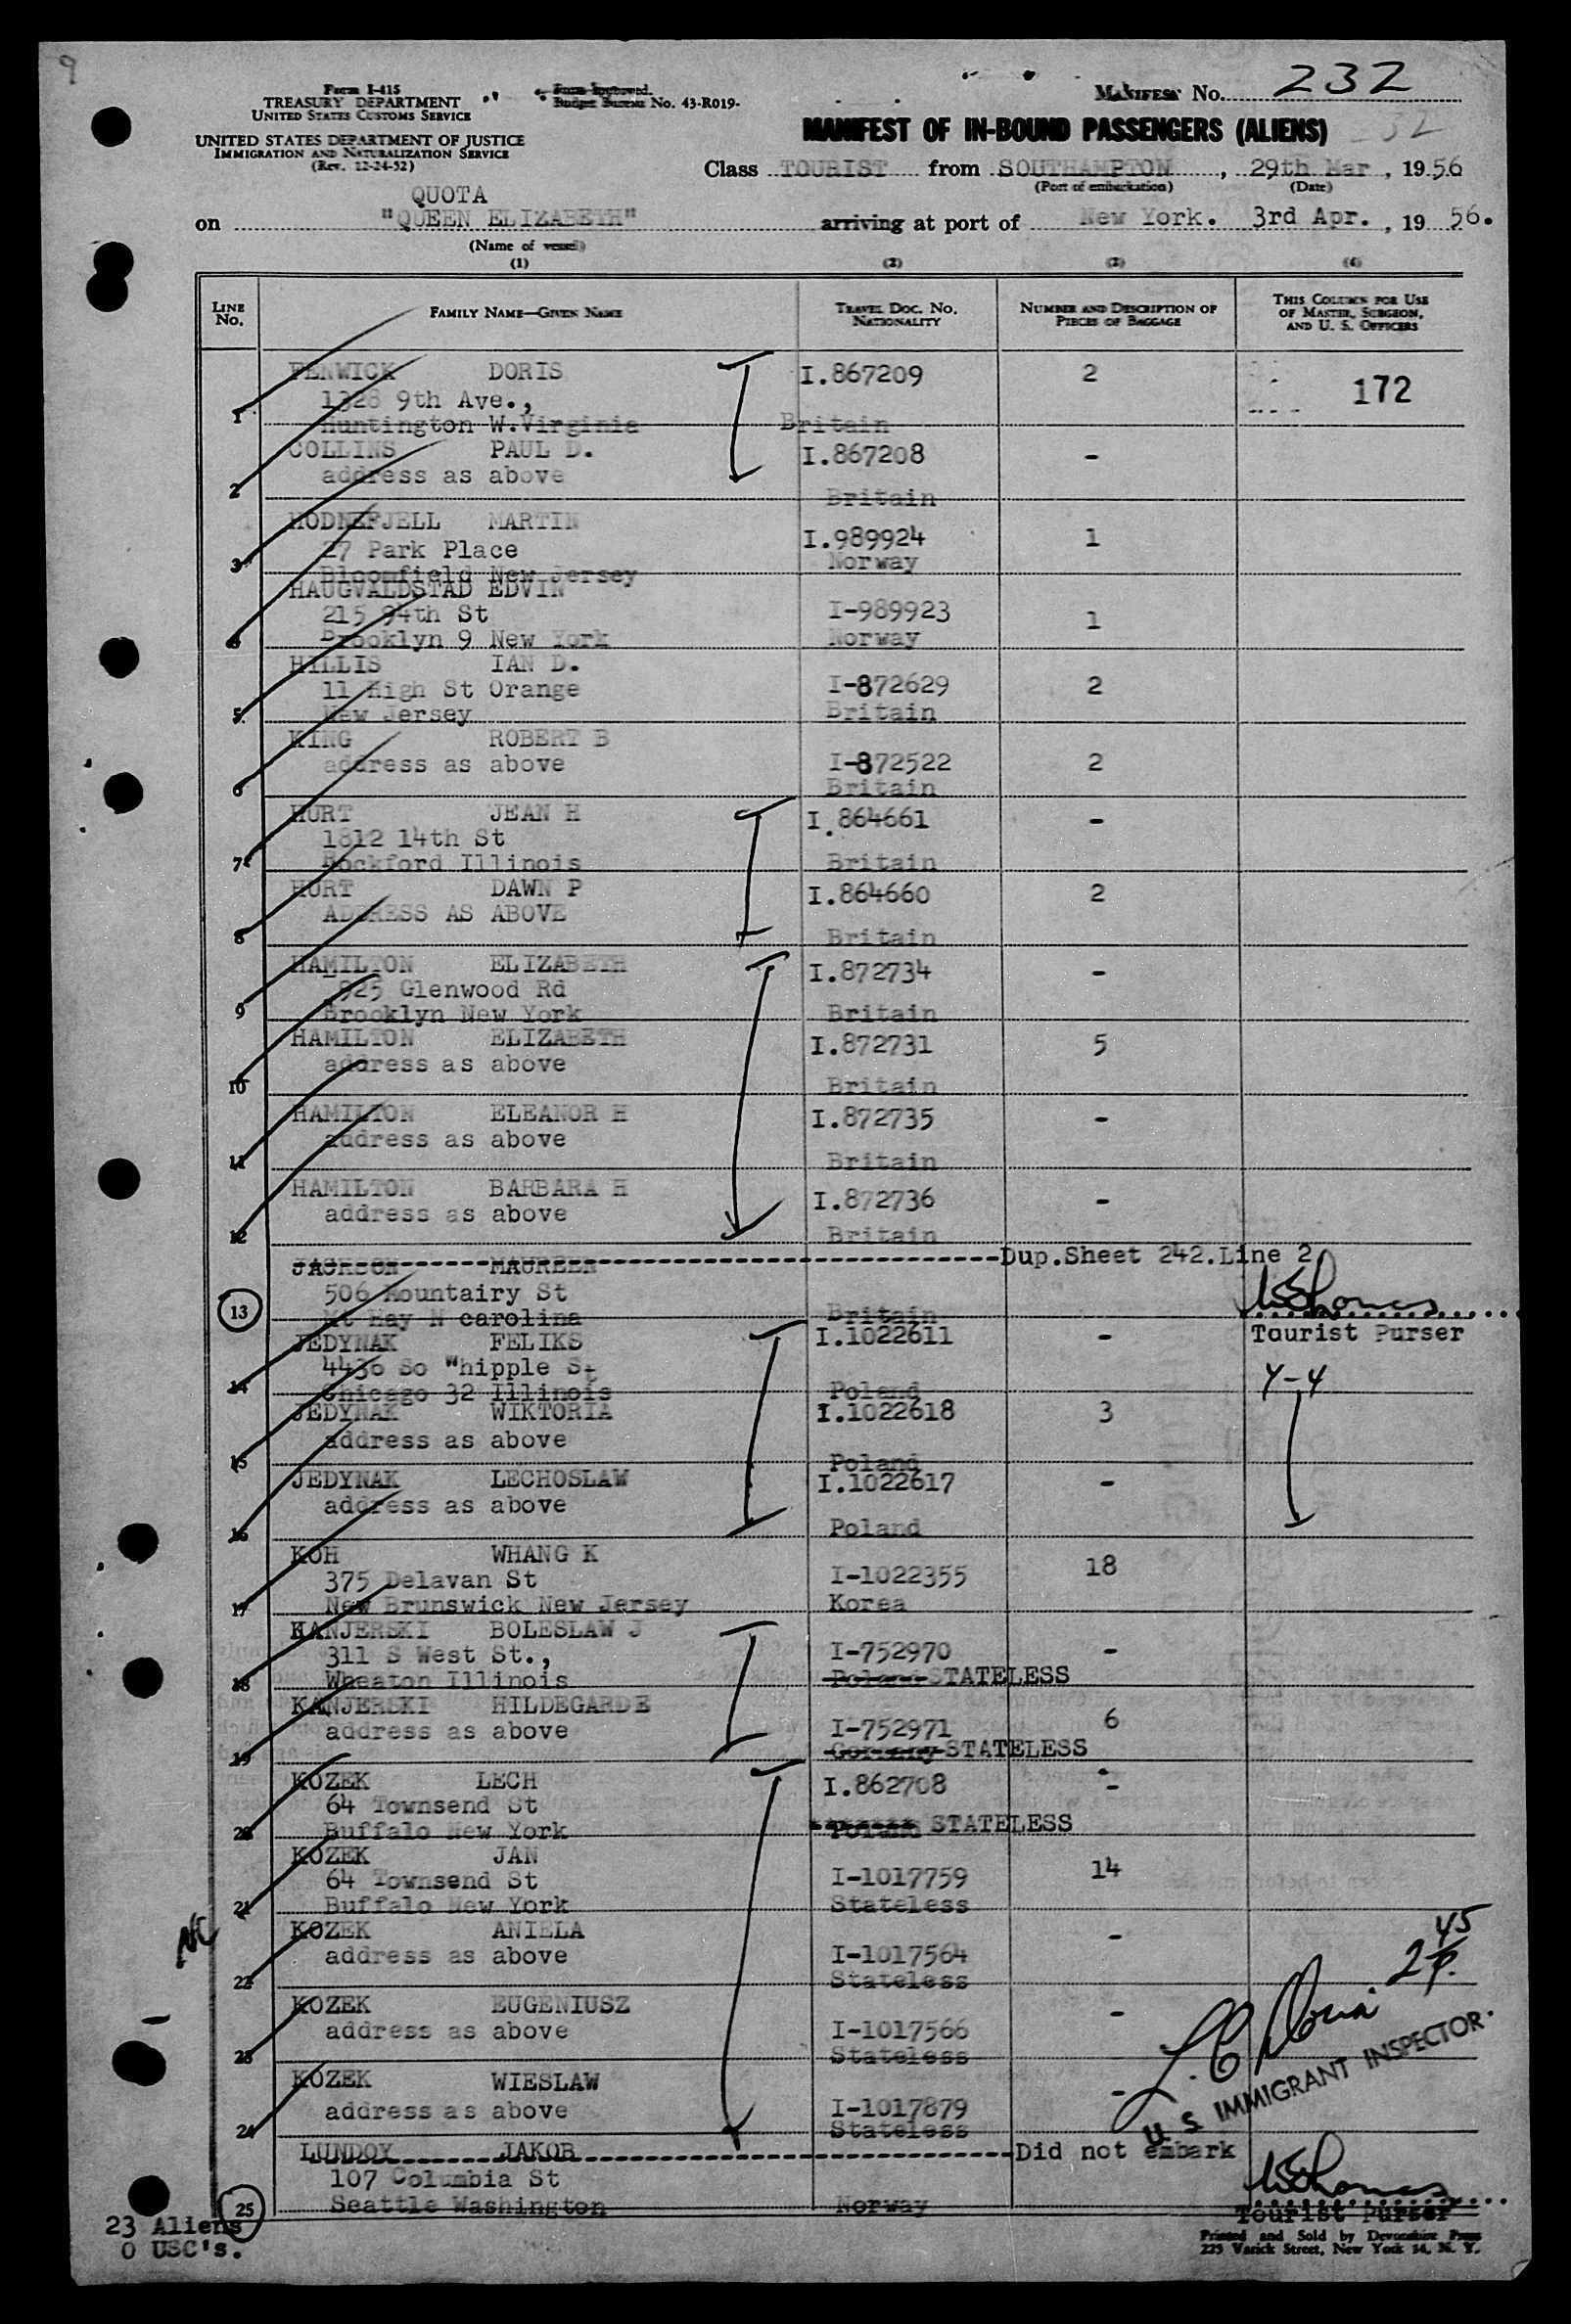 9
Form I-415
TREASURY DEPARTMENT
UNITED STATES CUSTOMS SERVICE
UNITED STATES DEPARTMENT OF JUSTICE
IMMIGRATION AND NATURALIZATION SERVICE
(Rev. 12-24-52)
Form Approved.
Budget Bureau No. 43-R019-
MANIFEST No. 232
MANIFEST OF IN-BOUND PASSENGERS (ALIENS)
Class TOURIST from SOUTHAMPTON, 29th Mar, 1956
(Port of embarkation) (Date)
QUOTA
on "QUEEN ELIZABETH" arriving at port of New York. 3rd Apr., 19 56.
(Name of vessel)
(1) (2) (3) (4)
LINE No. FAMILY NAME—GIVEN NAME TRAVEL DOC. No. NATIONALITY NUMBER AND DESCRIPTION OF PIECES OF BAGGAGE THIS COLUMN FOR USE OF MASTER, SURGEON, AND U. S. OFFICERS
FENWICK DORIS I.867209 2 172
1328 9th Ave.,
1 Huntington W.Virginia Britain
COLLINS PAUL D. I.867208 -
2 address as above
Britain
HODNEFJELL MARTIN I.989924 1
27 Park Place Norway
3 Bloomfield New Jersey
HAUGVALDSTAD EDVIN
215 94th St I-989923 1
4 Brooklyn 9 New York Norway
HILLIS IAN D.
11 High St Orange I-872629 2
5 New Jersey Britain
KING ROBERT B
address as above I-872522 2
6 Britain
HURT JEAN H I.864661 -
1812 14th St
7 Rockford Illinois Britain
HURT DAWN P I.864660 2
ADDRESS AS ABOVE
8 Britain
HAMILTON ELIZABETH I.872734 -
925 Glenwood Rd
9 Brooklyn New York Britain
HAMILTON ELIZABETH I.872731 5
address as above
10 Britain
HAMILTON ELEANOR H I.872735 -
address as above
11 Britain
HAMILTON BARBARA H I.872736 -
address as above
12 Britain
JACKSON MAUREEN Dup.Sheet 242.Line 2
506 Mountairy St
13 Mt Hay N carolina Britain
JEDYNAK FELIKS I.1022611 - Tourist Purser
4436 So Whipple St
14 Chicago 32 Illinois Poland 4-4
JEDYNAK WIKTORIA I.1022618 3
address as above
15 Poland
JEDYNAK LECHOSLAW I.1022617 -
address as above
16 Poland
KOH WHANG K
375 Delavan St I-1022355 18
17 New Brunswick New Jersey Korea
KANJERSKI BOLESLAW J
311 S West St., I-752970 -
18 Wheaton Illinois Poland STATELESS
KANJERSKI HILDEGARDE
address as above I-752971 6
19 Germany STATELESS
KOZEK LECH I.862708 -
64 Townsend St
20 Buffalo New York Poland STATELESS
KOZEK JAN
64 Townsend St I-1017759 14
21 Buffalo New York Stateless
NC
KOZEK ANIELA -
address as above I-1017564
22 Stateless
2 45 P.
KOZEK EUGENIUSZ -
address as above I-1017566
23 Stateless
U. S. IMMIGRANT INSPECTOR.
KOZEK WIESLAW -
address as above I-1017879
24 Stateless
LUNDOY JAKOB Did not embark
107 Columbia St
25 Seattle Washington Norway
Tourist Purser
23 Aliens
0 USC's.
Printed and Sold by Devonshire Press
225 Varick Street, New York 14, N. Y.